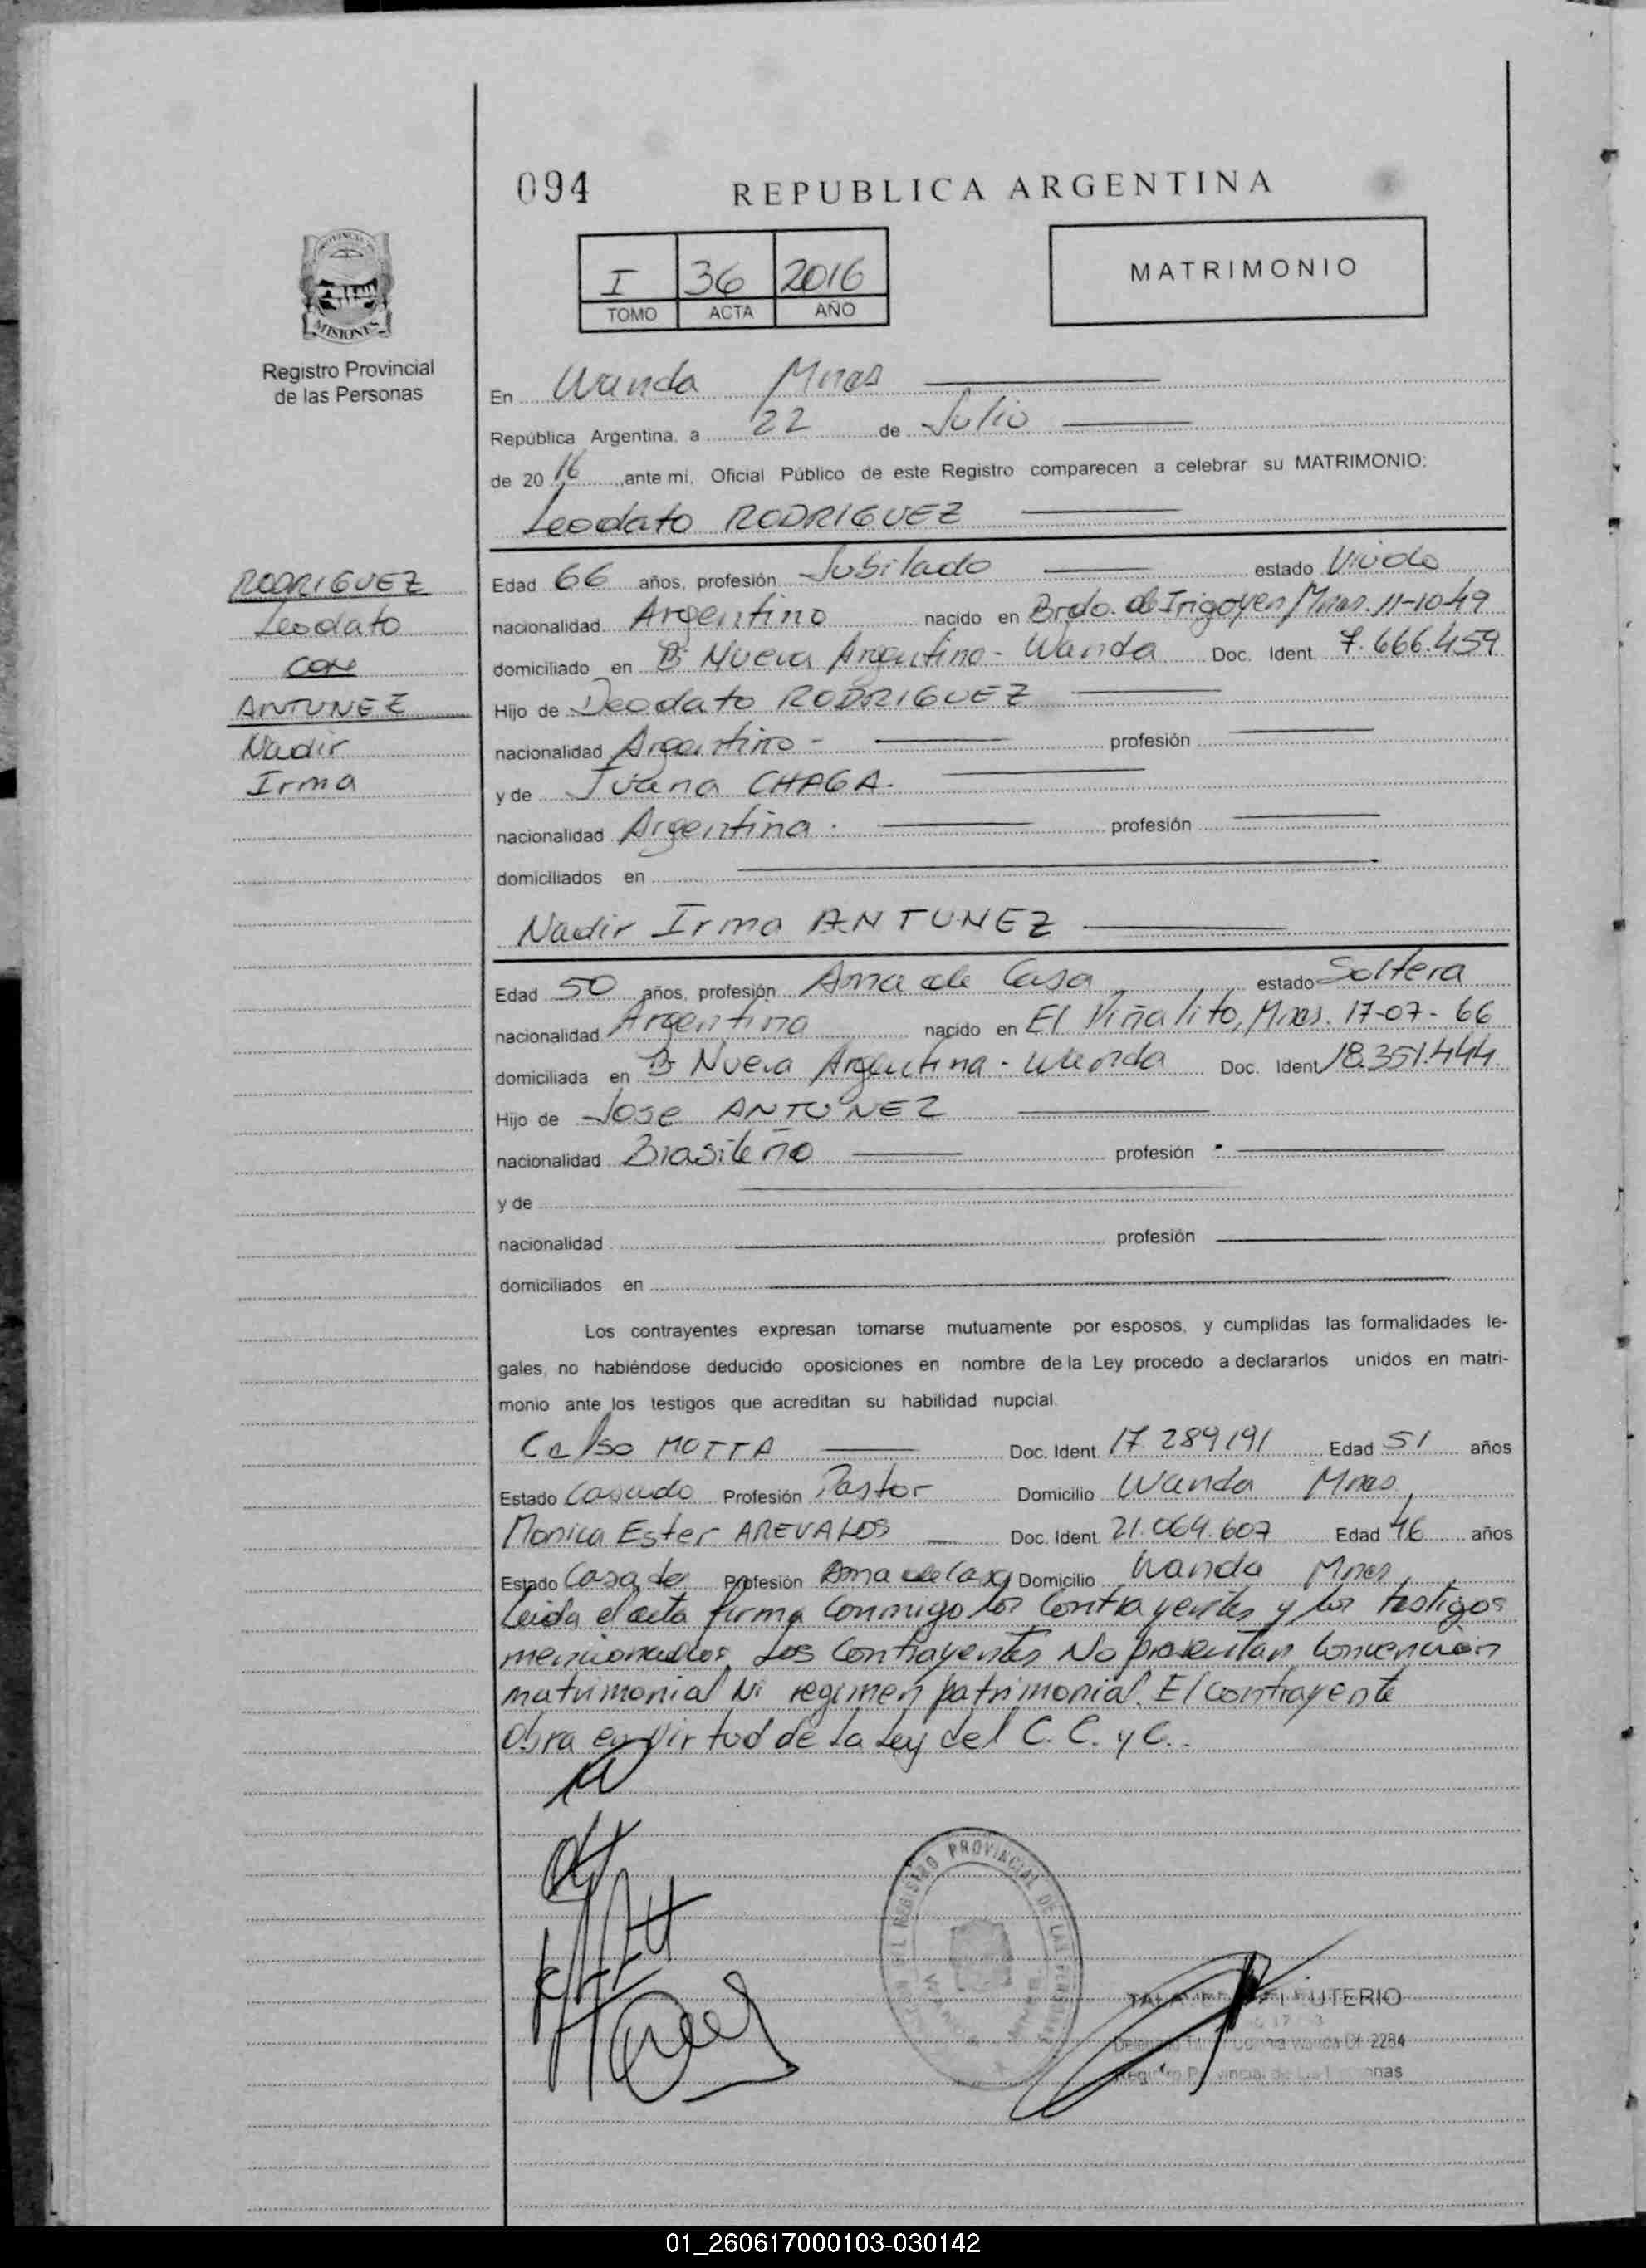 094
REPUBLICA ARGENTINA
PROVINCIA DE
MISIONES
Registro Provincial
de las Personas
I 36 2016
TOMO ACTA AÑO
MATRIMONIO
En Wanda Mnes
República Argentina, a 22 de Julio
de 2016, ante mi, Oficial Público de este Registro comparecen a celebrar su MATRIMONIO:
Leodato RODRIGUEZ
RODRIGUEZ
Leodato
con
ANTUNEZ
Nadir
Irma
Edad 66 años, profesión Jubilado estado Viudo
nacionalidad Argentino nacido en Brdo. de Irigoyen Mnes. 11-10-49
domiciliado en B Nueva Argentina - Wanda Doc. Ident. 7.666.459
Hijo de Deodato RODRIGUEZ
nacionalidad Argentino - profesión
y de Juana CHAGA.
nacionalidad Argentina. profesión
domiciliados en
Nadir Irma ANTUNEZ
Edad 50 años, profesión Ama de Casa estado Soltera
nacionalidad Argentina nacido en El Piñalito, Mnes. 17-07-66
domiciliada en B Nueva Argentina - Wanda Doc. Ident 18.351.444
Hijo de Jose ANTUNEZ
nacionalidad Brasileño profesión
y de
nacionalidad profesión
domiciliados en
Los contrayentes expresan tomarse mutuamente por esposos, y cumplidas las formalidades le-
gales, no habiéndose deducido oposiciones en nombre de la Ley procedo a declararlos unidos en matri-
monio ante los testigos que acreditan su habilidad nupcial.
Celso MOTTA Doc. Ident. 17.289191 Edad 51 años
Estado Casado Profesión Pastor Domicilio Wanda Mnes
Monica Ester AREVALOS Doc. Ident. 21.064.607 Edad 46 años
Estado Casada Profesión Ama de Casa Domicilio Wanda Mnes
Leida el acta firma conmigo los contrayentes y los testigos
mencionados. Los Contrayentes No presentan Convención
matrimonial Ni regimen patrimonial. El contrayente
obra en virtud de la Ley del C. C. y C.
REGISTRO PROVINCIAL DE LAS PERSONAS
UTERIO
Wanda Of. 2284
Registro Provincial de Las
01_260617000103-030142